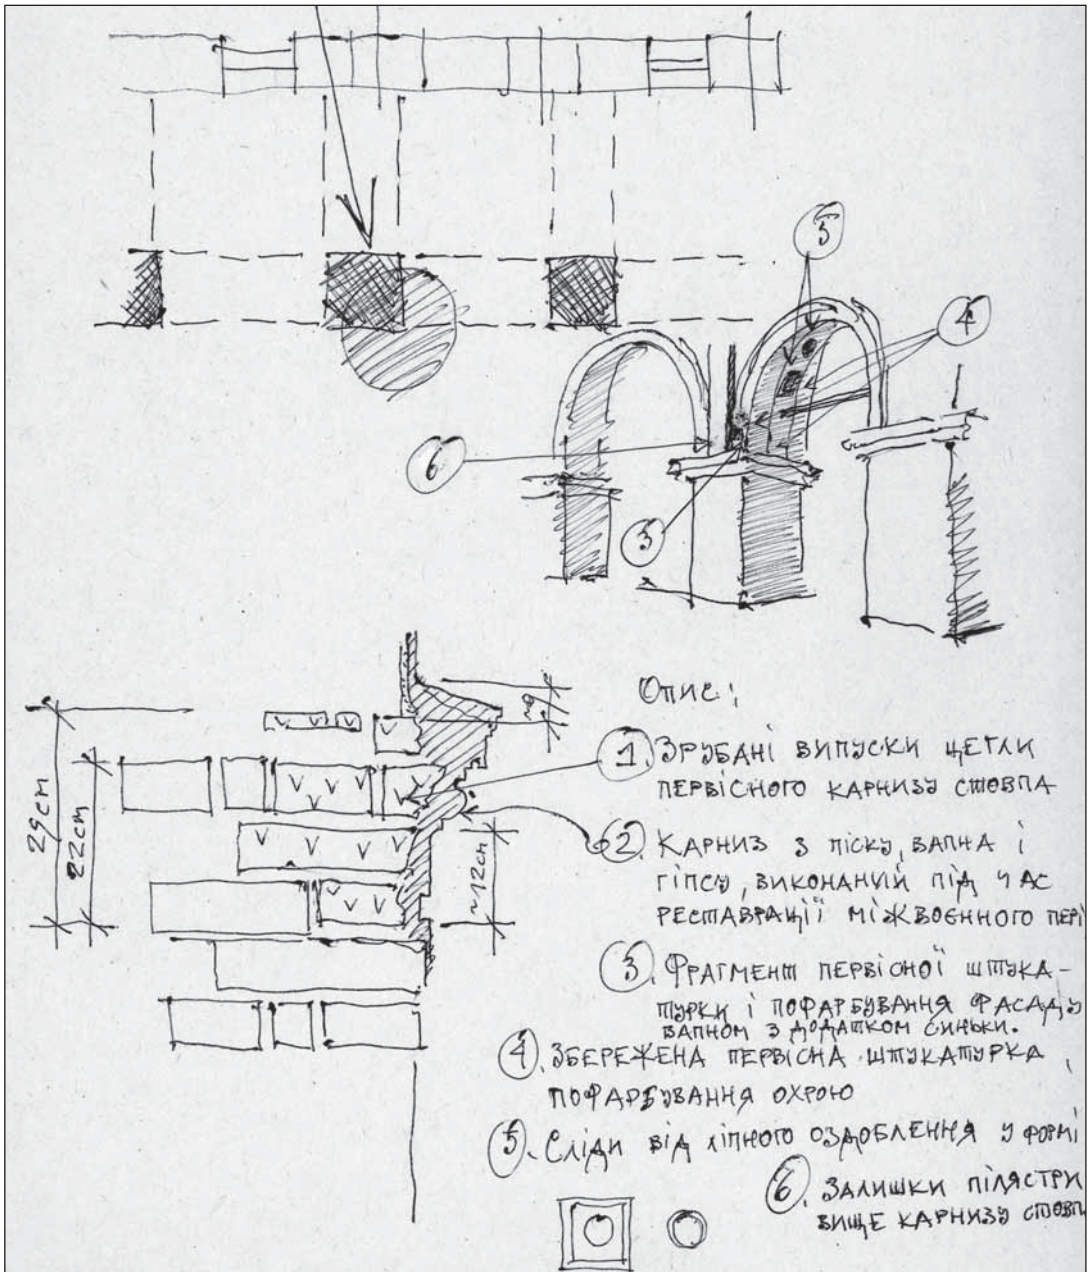 5
4
6
3
29cm
22cm
~12cm
Опис:
1. Зрубані випуски цегли
первісного карнизу стовпа
2. Карниз з піску, вапна і
гіпсу, виконаний під час
реставрації міжвоєнного пері
3. Фрагмент первісної штука-
турки і пофарбування фасаду
вапном з додатком синьки.
4. Збережена первісна штукатурка,
пофарбування охрою
5. Сліди від ліпного оздоблення у формі
6. Залишки пілястри
вище карнизу стовп